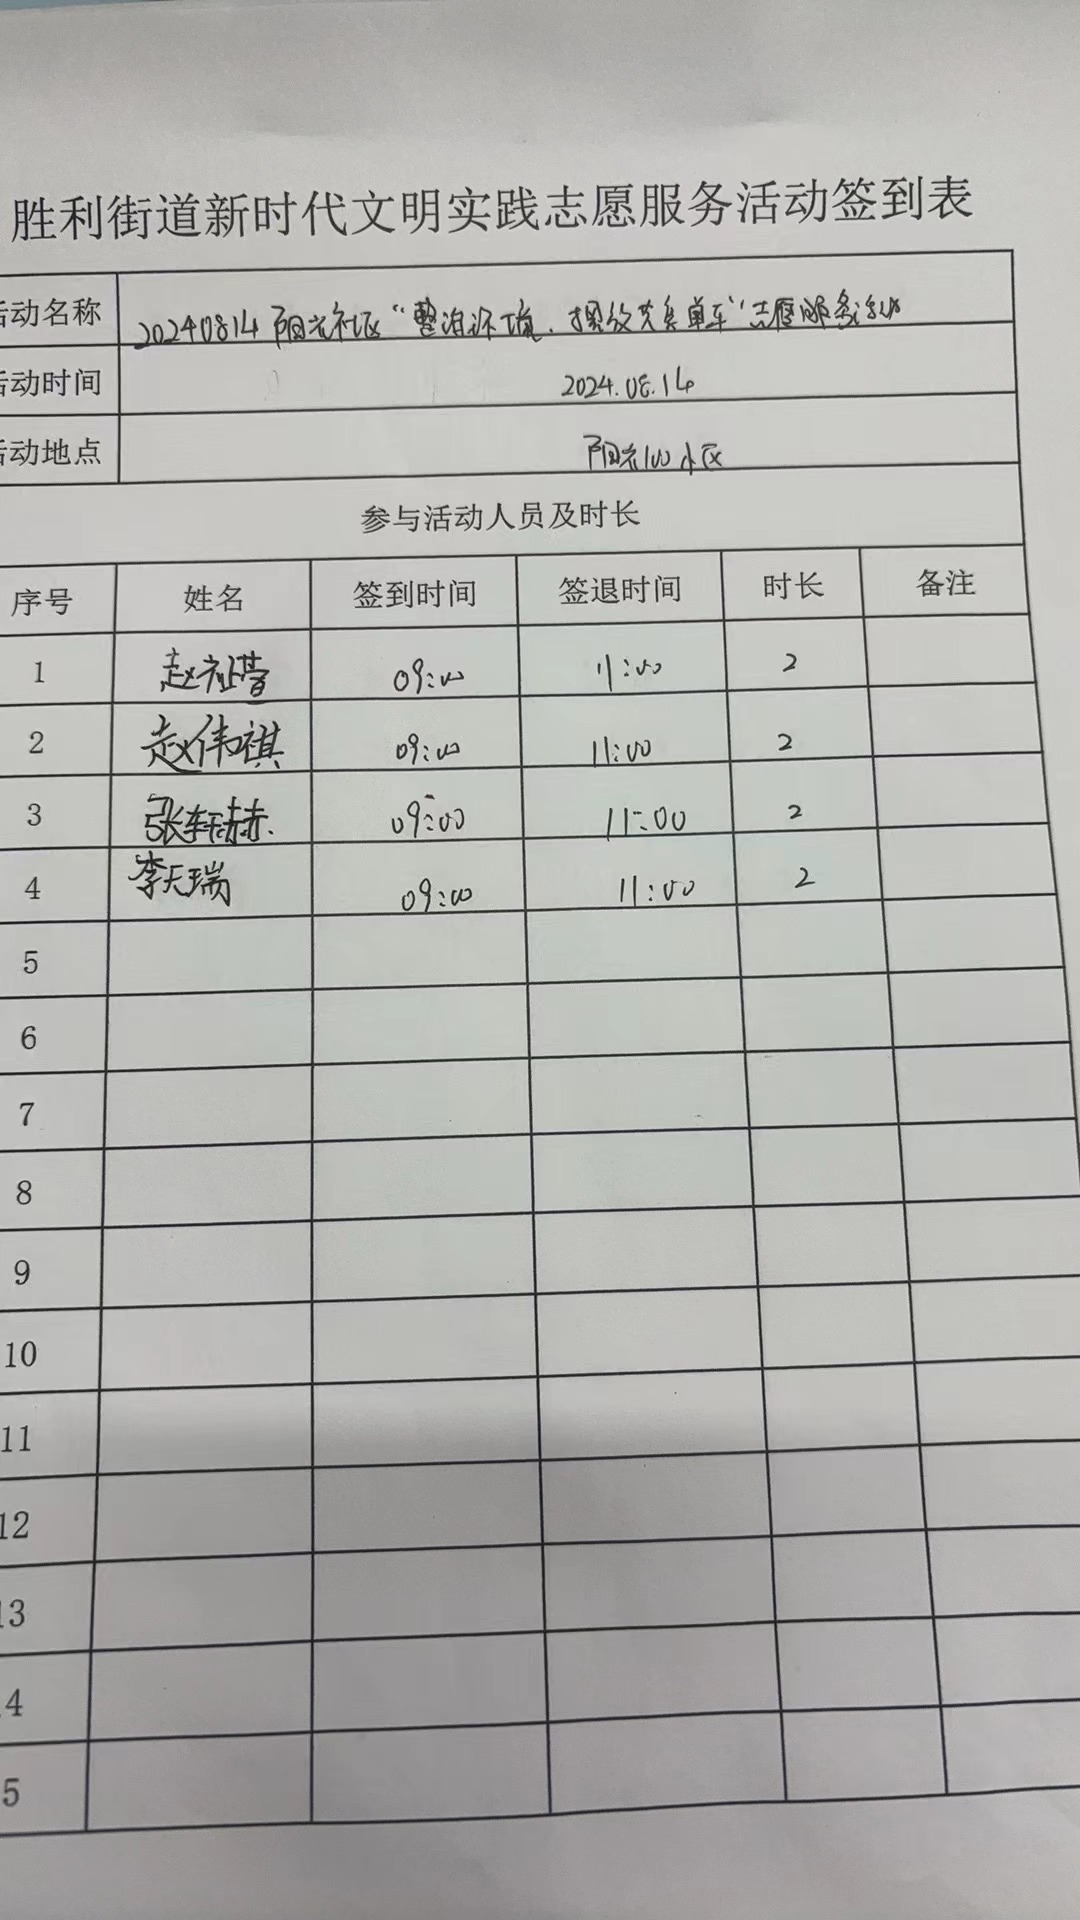 胜利街道新时代文明实践志愿服务活动签到表
活动名称 20240814阳光社区“整治环境、摆放共享单车”志愿服务活动
活动时间 2024.08.14
活动地点 阳光100小区
参与活动人员及时长
序号 姓名 签到时间 签退时间 时长 备注
1 赵 09:00 11:00 2
2 赵伟祺 09:00 11:00 2
3 张轩赫 09:00 11:00 2
4 李天瑞 09:00 11:00 2
5
6
7
8
9
10
11
12
13
4
5